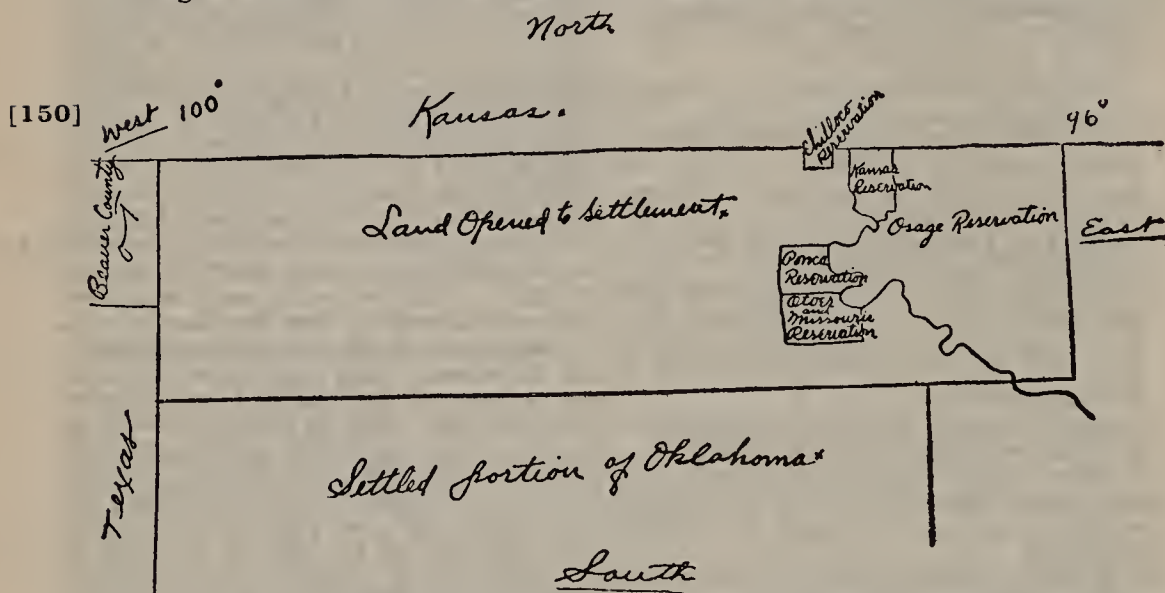 North
[150]
West 100°
Kansas.
Chilloco
Reservation
96°
Beaver County
Kansas
Reservation
Land Opened to Settlement.
Osage Reservation
East
Ponca
Reservation
Otoes
and
Missouria
Reservation
Texas
Settled portion of Oklahoma
South